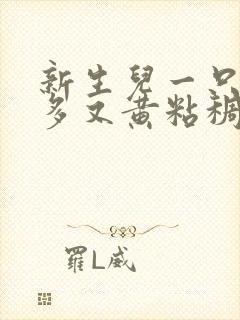 新生兒一口
多又黃粘稠
羅L威